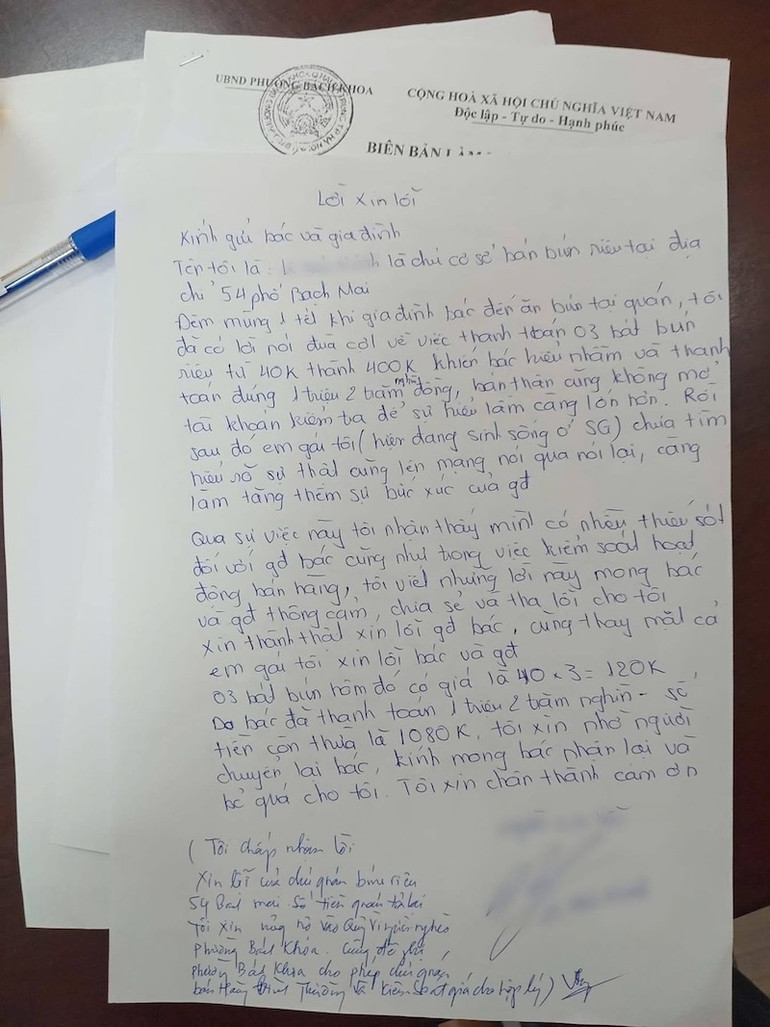 UBND PHƯỜNG BÁCH KHOA
CỘNG HOÀ XÃ HỘI CHỦ NGHĨA VIỆT NAM
Độc lập - Tự do - Hạnh phúc
BIÊN BẢN LÀM
Lời xin lỗi
Kính gửi bác và gia đình
Tên tôi là: là chủ cơ sở bán bún riêu tại địa
chỉ 54 phố Bạch Mai
Đêm mùng 1 tết khi gia đình bác đến ăn bún tại quán, tôi
đã có lời nói đùa cợt về việc thanh toán 03 bát bún
riêu từ 40K thành 400K khiến bác hiểu nhầm và thanh
toán đúng 1 triệu 2 trăm nghìn đồng, bản thân cũng không mở
tài khoản kiểm tra để sự hiểu lầm càng lớn hơn. Rồi
sau đó em gái tôi (hiện đang sinh sống ở SG) chưa tìm
hiểu rõ sự thật cũng lên mạng nói qua nói lại, càng
làm tăng thêm sự bức xúc của gđ
Qua sự việc này tôi nhận thấy mình có nhiều thiếu sót
đối với gđ bác cũng như trong việc kiểm soát hoạt
động bán hàng, tôi viết những lời này mong bác
và gđ thông cảm, chia sẻ và tha lỗi cho tôi
xin thành thật xin lỗi gđ bác, cũng thay mặt cả
em gái tôi xin lỗi bác và gđ
03 bát bún hôm đó có giá là 40 x 3 = 120K
Do bác đã thanh toán 1 triệu 2 trăm nghìn - số
tiền còn thừa là 1080K, tôi xin nhờ người
chuyển lại bác, kính mong bác nhận lại và
bỏ quá cho tôi. Tôi xin chân thành cảm ơn
(Tôi chấp nhận lời
xin lỗi của chủ quán bún riêu
54 Bạch mai số tiền quán trả lại
Tôi xin ủng hộ vào Quỹ Vì người nghèo
phường Bách Khoa. Cũng đề nghị
phường Bách Khoa cho phép chủ quán
bán Hàng Bình Thường và Kiểm Soát giá cho hợp lý)